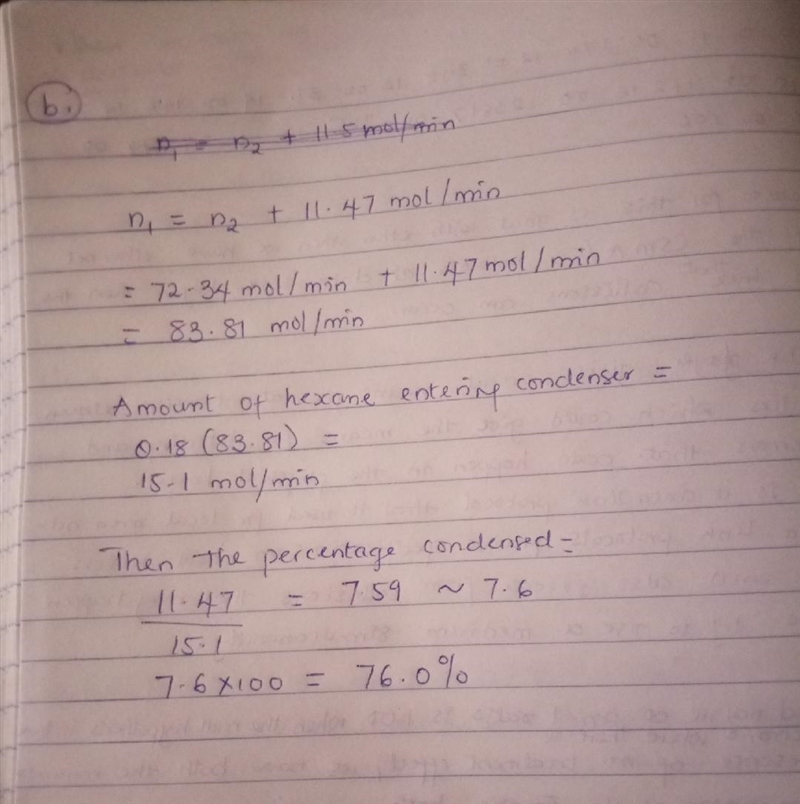 b.
n₁ = n₂ + 11.5 mol/min
n₁ = n₂ + 11.47 mol/min
= 72.34 mol/min + 11.47 mol/min
= 83.81 mol/min
Amount of hexane entering condenser =
0.18 (83.81) =
15.1 mol/min
Then the percentage condensed =
11.47 = 7.59 ~ 7.6
15.1
7.6 x 100 = 76.0%